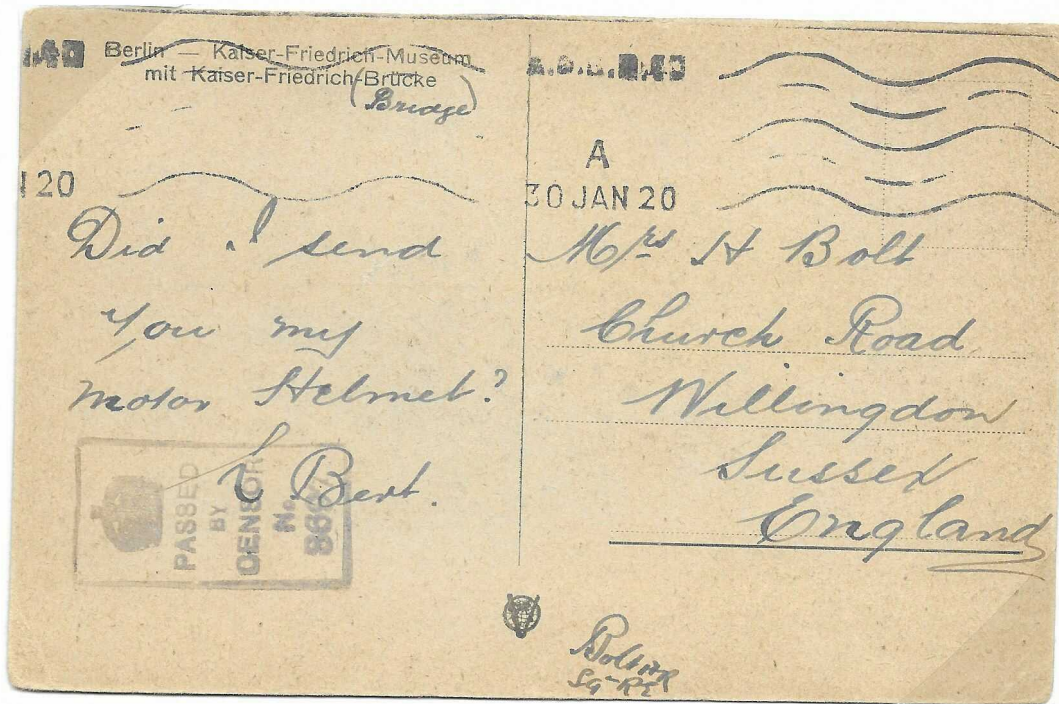 Berlin — Kaiser-Friedrich-Museum
mit Kaiser-Friedrich-Brücke
(Bridge)
20
Did I send
you my
motor Helmet?
Bert.
PASSED
BY
CENSOR
No.
A
30 JAN 20
Mrs H Bolt
Church Road
Willingdon
Sussex
England